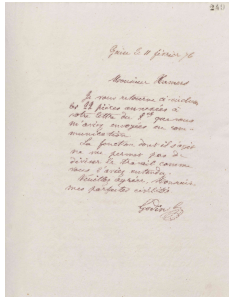 249
11 février 76
Monsieur
Je vous retourne ci-inclus
les 22 pièces annexées à
votre lettre du que vous
m'avez envoyées en com-
munication.
La fonction dont il s'agit
ne me permet pas de
diviser le travail comme
vous l'aviez entendu.
Veuillez agréer, Monsieur
mes parfaites civilités